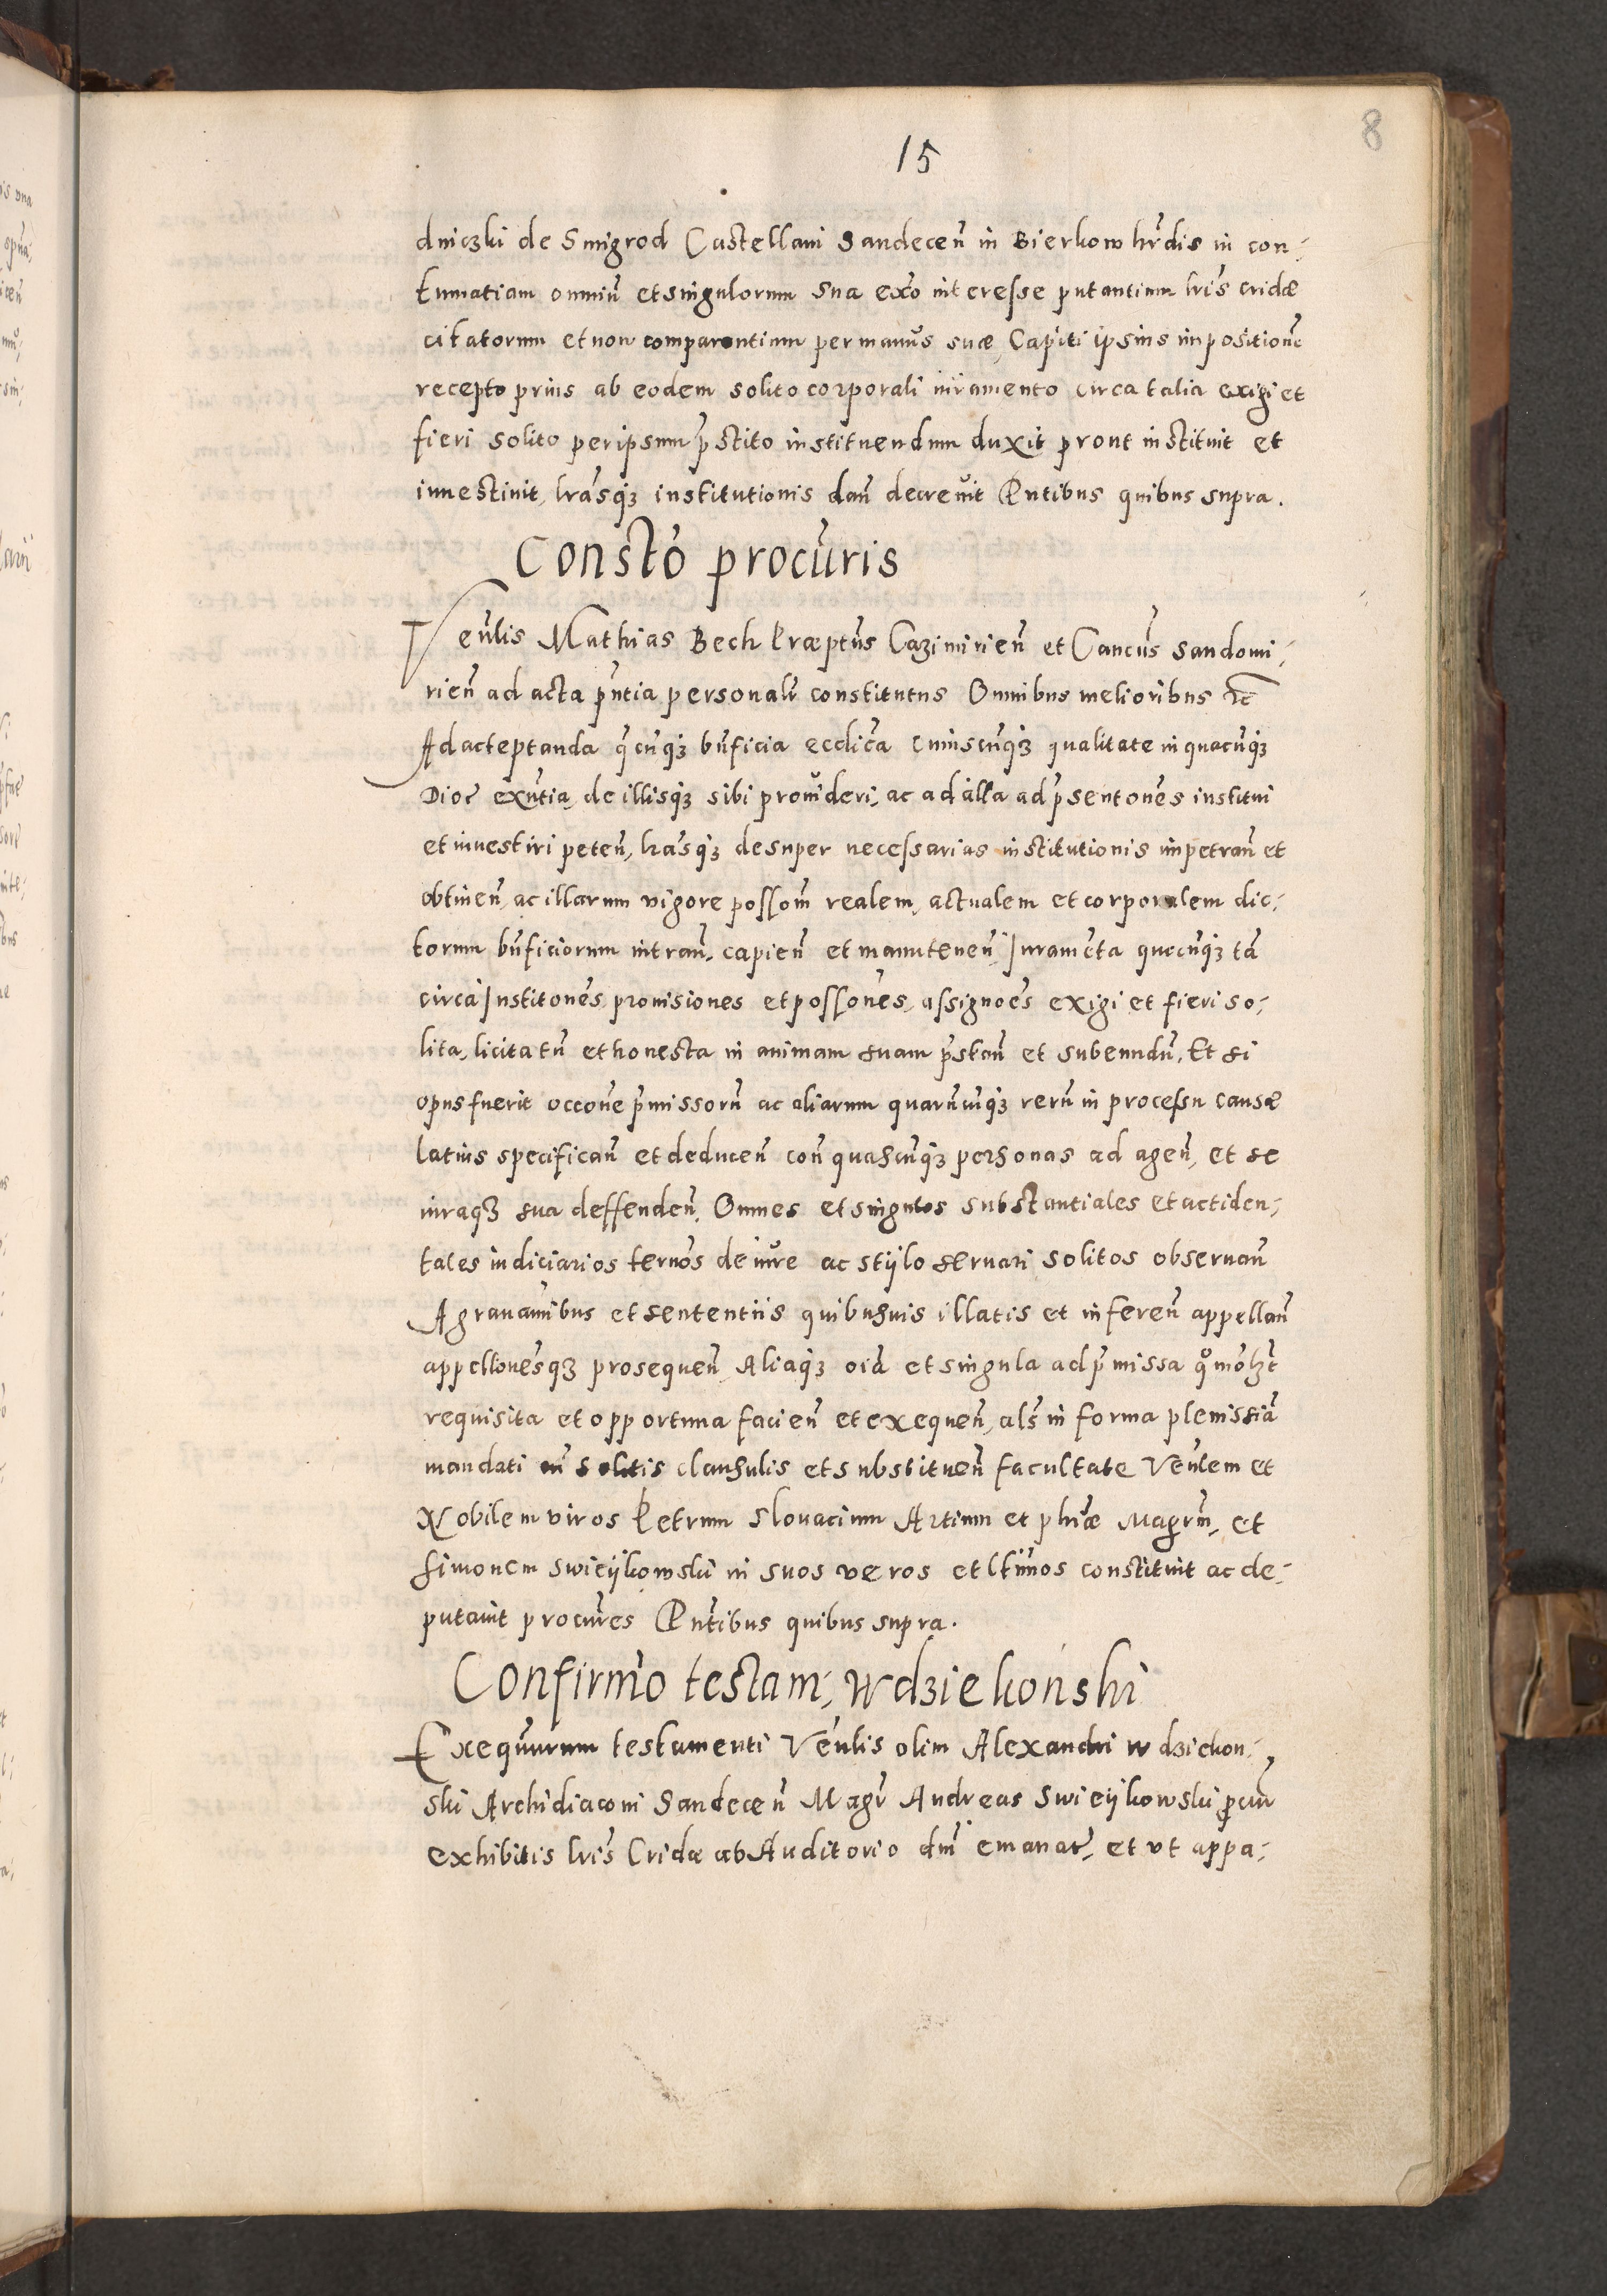 8
15
dniczki de Smigrod Castellani Sandecen̄ in Bierkow hr̄dis in con-
tumatiam omniū et singulorum sua ex̄o interesse putantium lr̄is cridæ
citatorum et non comparentium per manus suæ Capiti ipsius impositionē
recepto prius ab eodem solito corporali iuramento circa talia exigi et
fieri solito per ipsum p̄stito instituendum duxit prout instituit et
inuestiuit, lr̄asq3 institutionis dan̄ decreuit Pn̄tibus quibus supra.
Constō procūris
Vēnlis Mathias Bech Præptūs Cazimirien̄ et Cancūs Sandomi-
rien̄ ad acta pn̄tia personalr̄ constitutus Omnibus melioribus ꝛc̄
Ad acteptanda q̄cūq3 bn̄ficia eccl̄ica cuiuscūq3 qualitate in quacūq3
Dioc̄ exn̄tia, de illisq3 sibi prouideri, ac ad illa ad p̄sentonēs institui
et inuestiri peten̄, lr̄asq3 desuper necessarias institutionis impetran̄ et
obtinen̄, ac illarum vigore possom̄ realem, actualem et corporalem dic-
torum bn̄ficiorum intran̄, capien̄ et manutenen̄, Juramēta quecūq3 tā
circa Institonēs prouisiones et possonēs, assignoēs exigi et fieri so-
lita, licita tn̄ et honesta in animam suam p̄stan̄ et subeundū, Et si
opus fuerit occonē p̄missorū ac aliarum quarūcūq3 rerū in processu causæ
latius specifican̄ et deducen̄ con̄ quascūq3 personas ad agen̄, et se
iuraq3 sua deffenden̄, Omnes et singulos substantiales et actiden-
tales iudiciarios ternōs de iure ac stijlo seruari solitos obseruan̄
Agrauaībus et sententiis quibusuis illatis et inferen̄ appellan̄
appellonēsq3 prosequen̄ Aliaq3 oiā et singula ad p̄missa q̄mōlzt
requisita et opportuna facien̄ et exequen̄, als̄ in forma plenissiā
mandati cū solitis clausulis et substituen̄ facultate Vēnlem et
Nobilem viros Petrum Slouacium Artium et phiǣ Magrm̄, et
Simonem Swieijkowski in suos veros et ltīmos constituit ac de-
putauit procūres Pn̄tibus quibus supra.
Confirmō testam, Wdziekoński
Exequūrum testamenti Vēnlis olim Alexandri Wdziekon-
ski Archidiaconi Sandecen̄ Magr̄ Andreas Swieijkowski pcūr
exhibitis lr̄is Cridæ ab Auditorio dn̄i emanat̄, et vt appa-